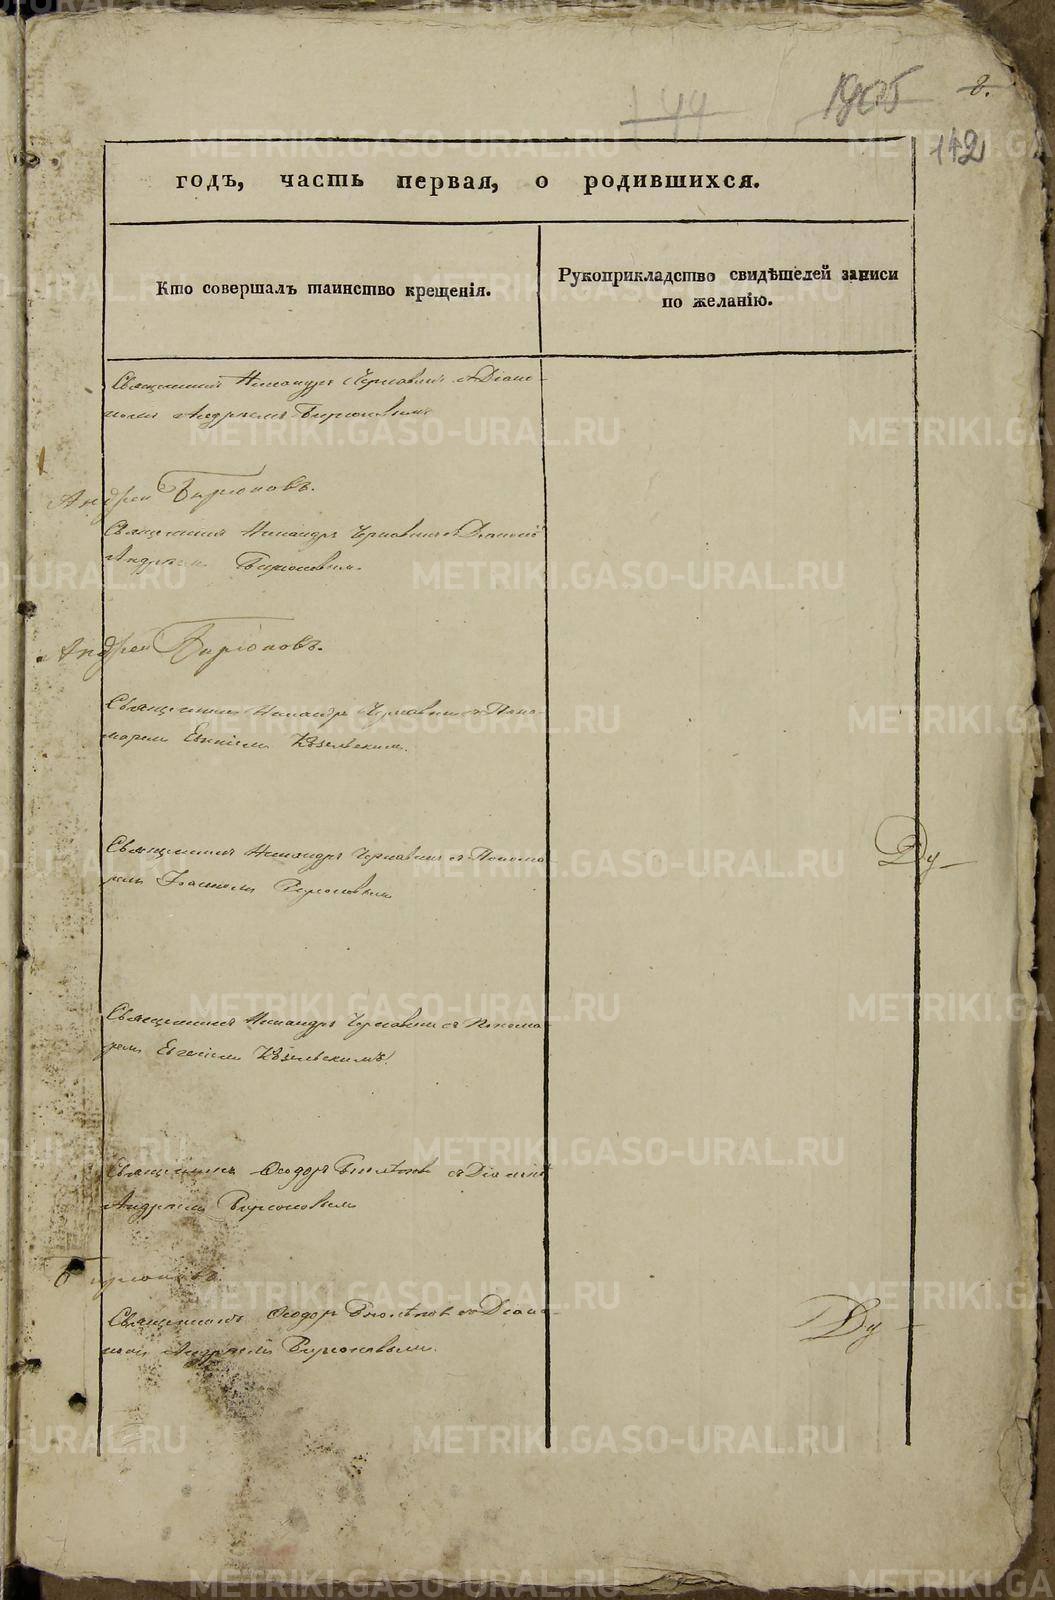 144
1905
8.
142
годъ, часть первая, о родившихся.
Кто совершалъ таинство крещенія.
Рукоприкладство свидѣтелей записи
по желанію.
Священникъ Никандръ Чернавинъ съ Діако-
номъ Андреемъ Бирюковымъ
Андрей Бирюковъ.
Священникъ Никандръ Чернавинъ съ Діакономъ
Андреемъ Бирюковымъ.
Андрей Бирюковъ.
Священникъ Никандръ Чернавинъ съ Поно-
маремъ
Священникъ Никандръ Чернавинъ съ Понома
ремъ Бирюковымъ
Священникъ Никандръ Чернавинъ съ Понома
ремъ Евгеніемъ
Священникъ Ѳеодоръ съ Діакономъ
Андреемъ Бирюковымъ
Бирюковъ.
Священникъ Ѳеодоръ съ Діако-
номъ Андреемъ Бирюковымъ.
METRIKI.GASO-URAL.RU